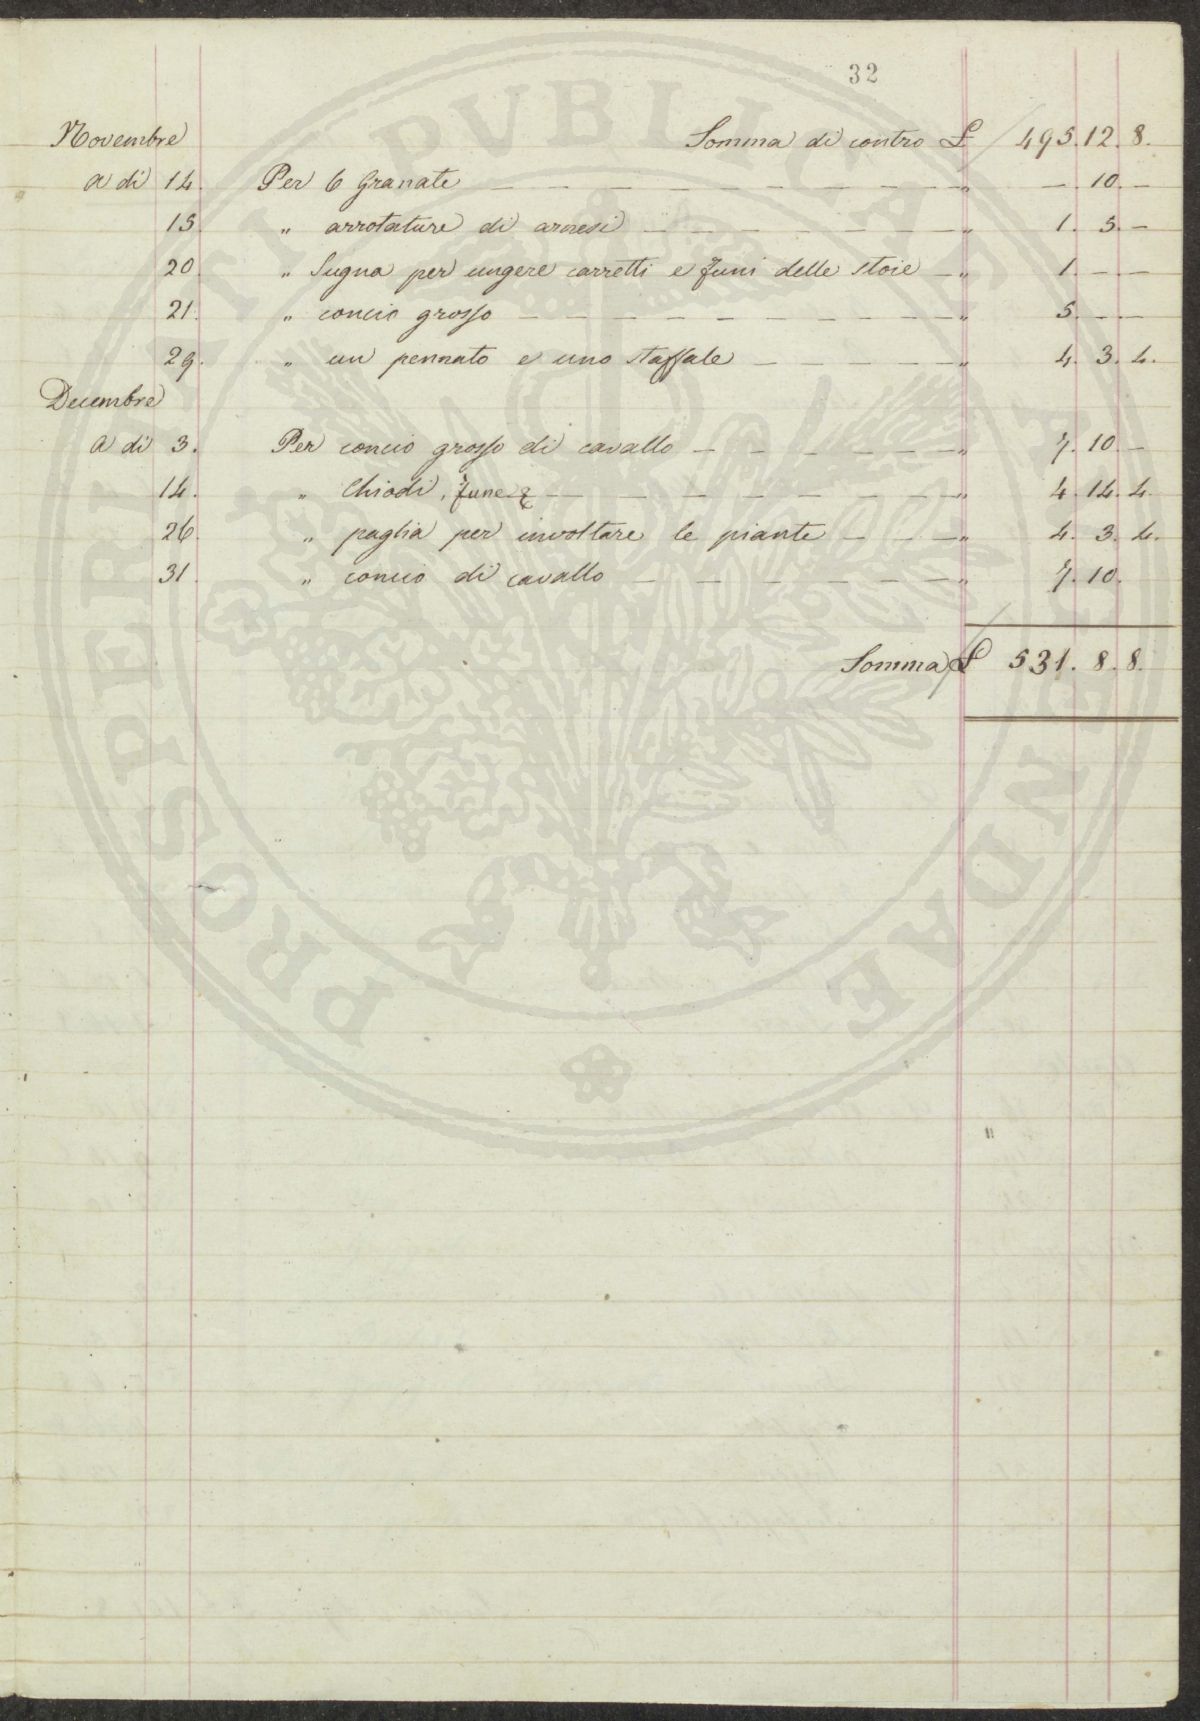 32
Novembre Somma di contro £ 495. 12. 8.
a dì 14. Per 6 Granate — " — . 10. —
15. " arrotature di arnesi — " 1. 5. —
20 " Sugna per ungere carretti e funi delle stoie — " 1. — —
21. " concio grosso — " 5. — —
29. " un pennato e uno staffale — " 4. 3. 4.
Decembre
a dì 3. Per concio grosso di cavallo — " 7. 10. —
14. " Chiodi, fune & — " 4. 14. 4.
26. " paglia per involtare le piante — " 4. 3. 4.
31. " concio di cavallo — " 7. 10.
Somma £ 531. 8. 8.
PROSPERITATI PVBLICAE AVGENDAE